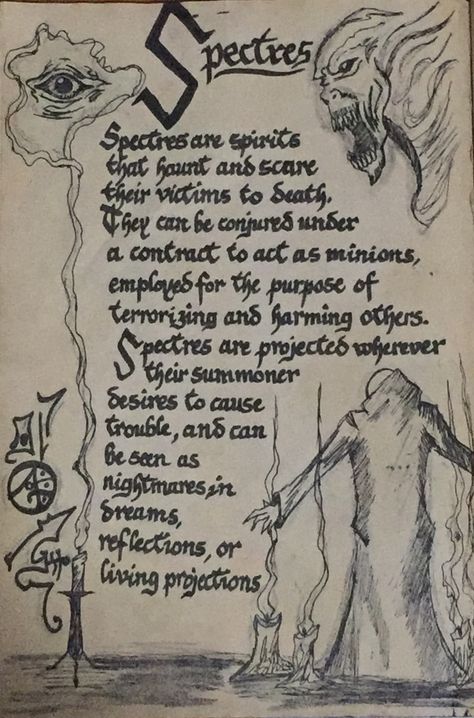 Spectres
Spectres are spirits
that haunt and scare
their victims to death.
They can be conjured under
a contract to act as minions,
employed for the purpose of
terrorizing and harming others.
Spectres are projected wherever
their summoner
desires to cause
trouble, and can
be seen as
nightmares, in
dreams,
reflections, or
living projections